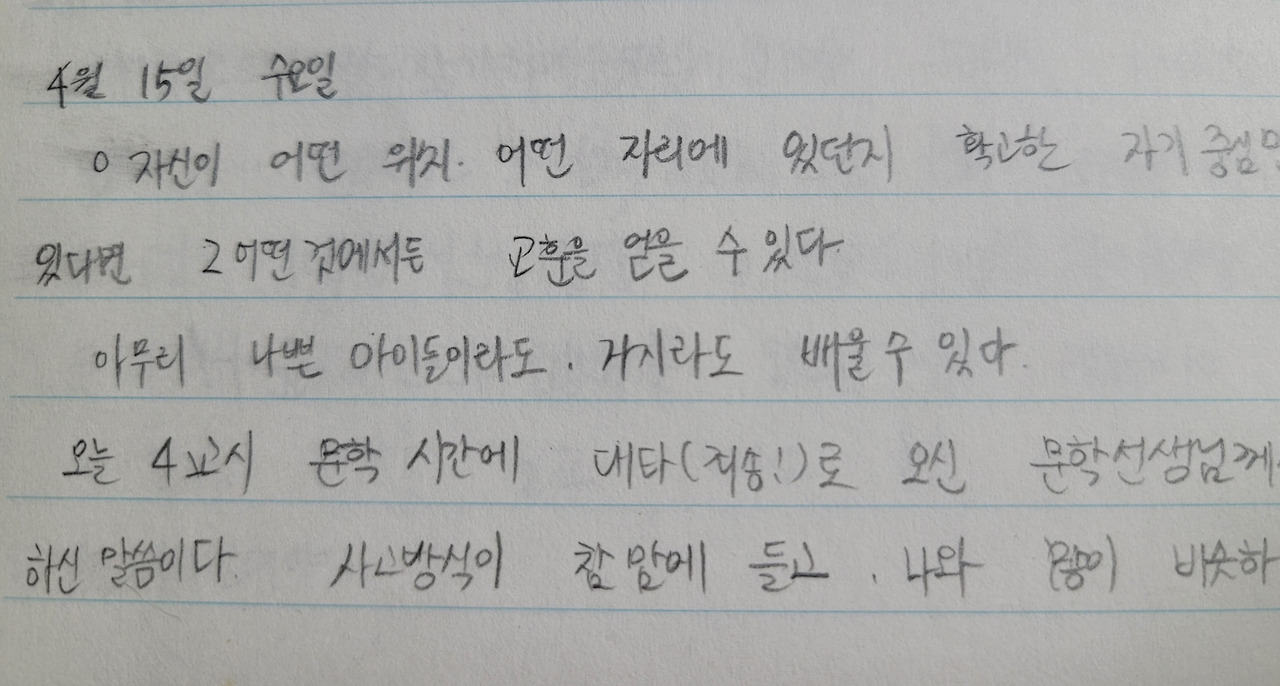 4월 15일 수요일
○ 자신이 어떤 위치. 어떤 자리에 있던지 확고한 자기 중심만
있다면 그 어떤 것에서든 교훈을 얻을 수 있다.
아무리 나쁜 아이들이라도. 거지라도 배울 수 있다.
오늘 4교시 문학 시간에 대타(죄송!)로 오신 문학선생님께
하신 말씀이다. 사고방식이 참 맘에 들고. 나와 많이 비슷하